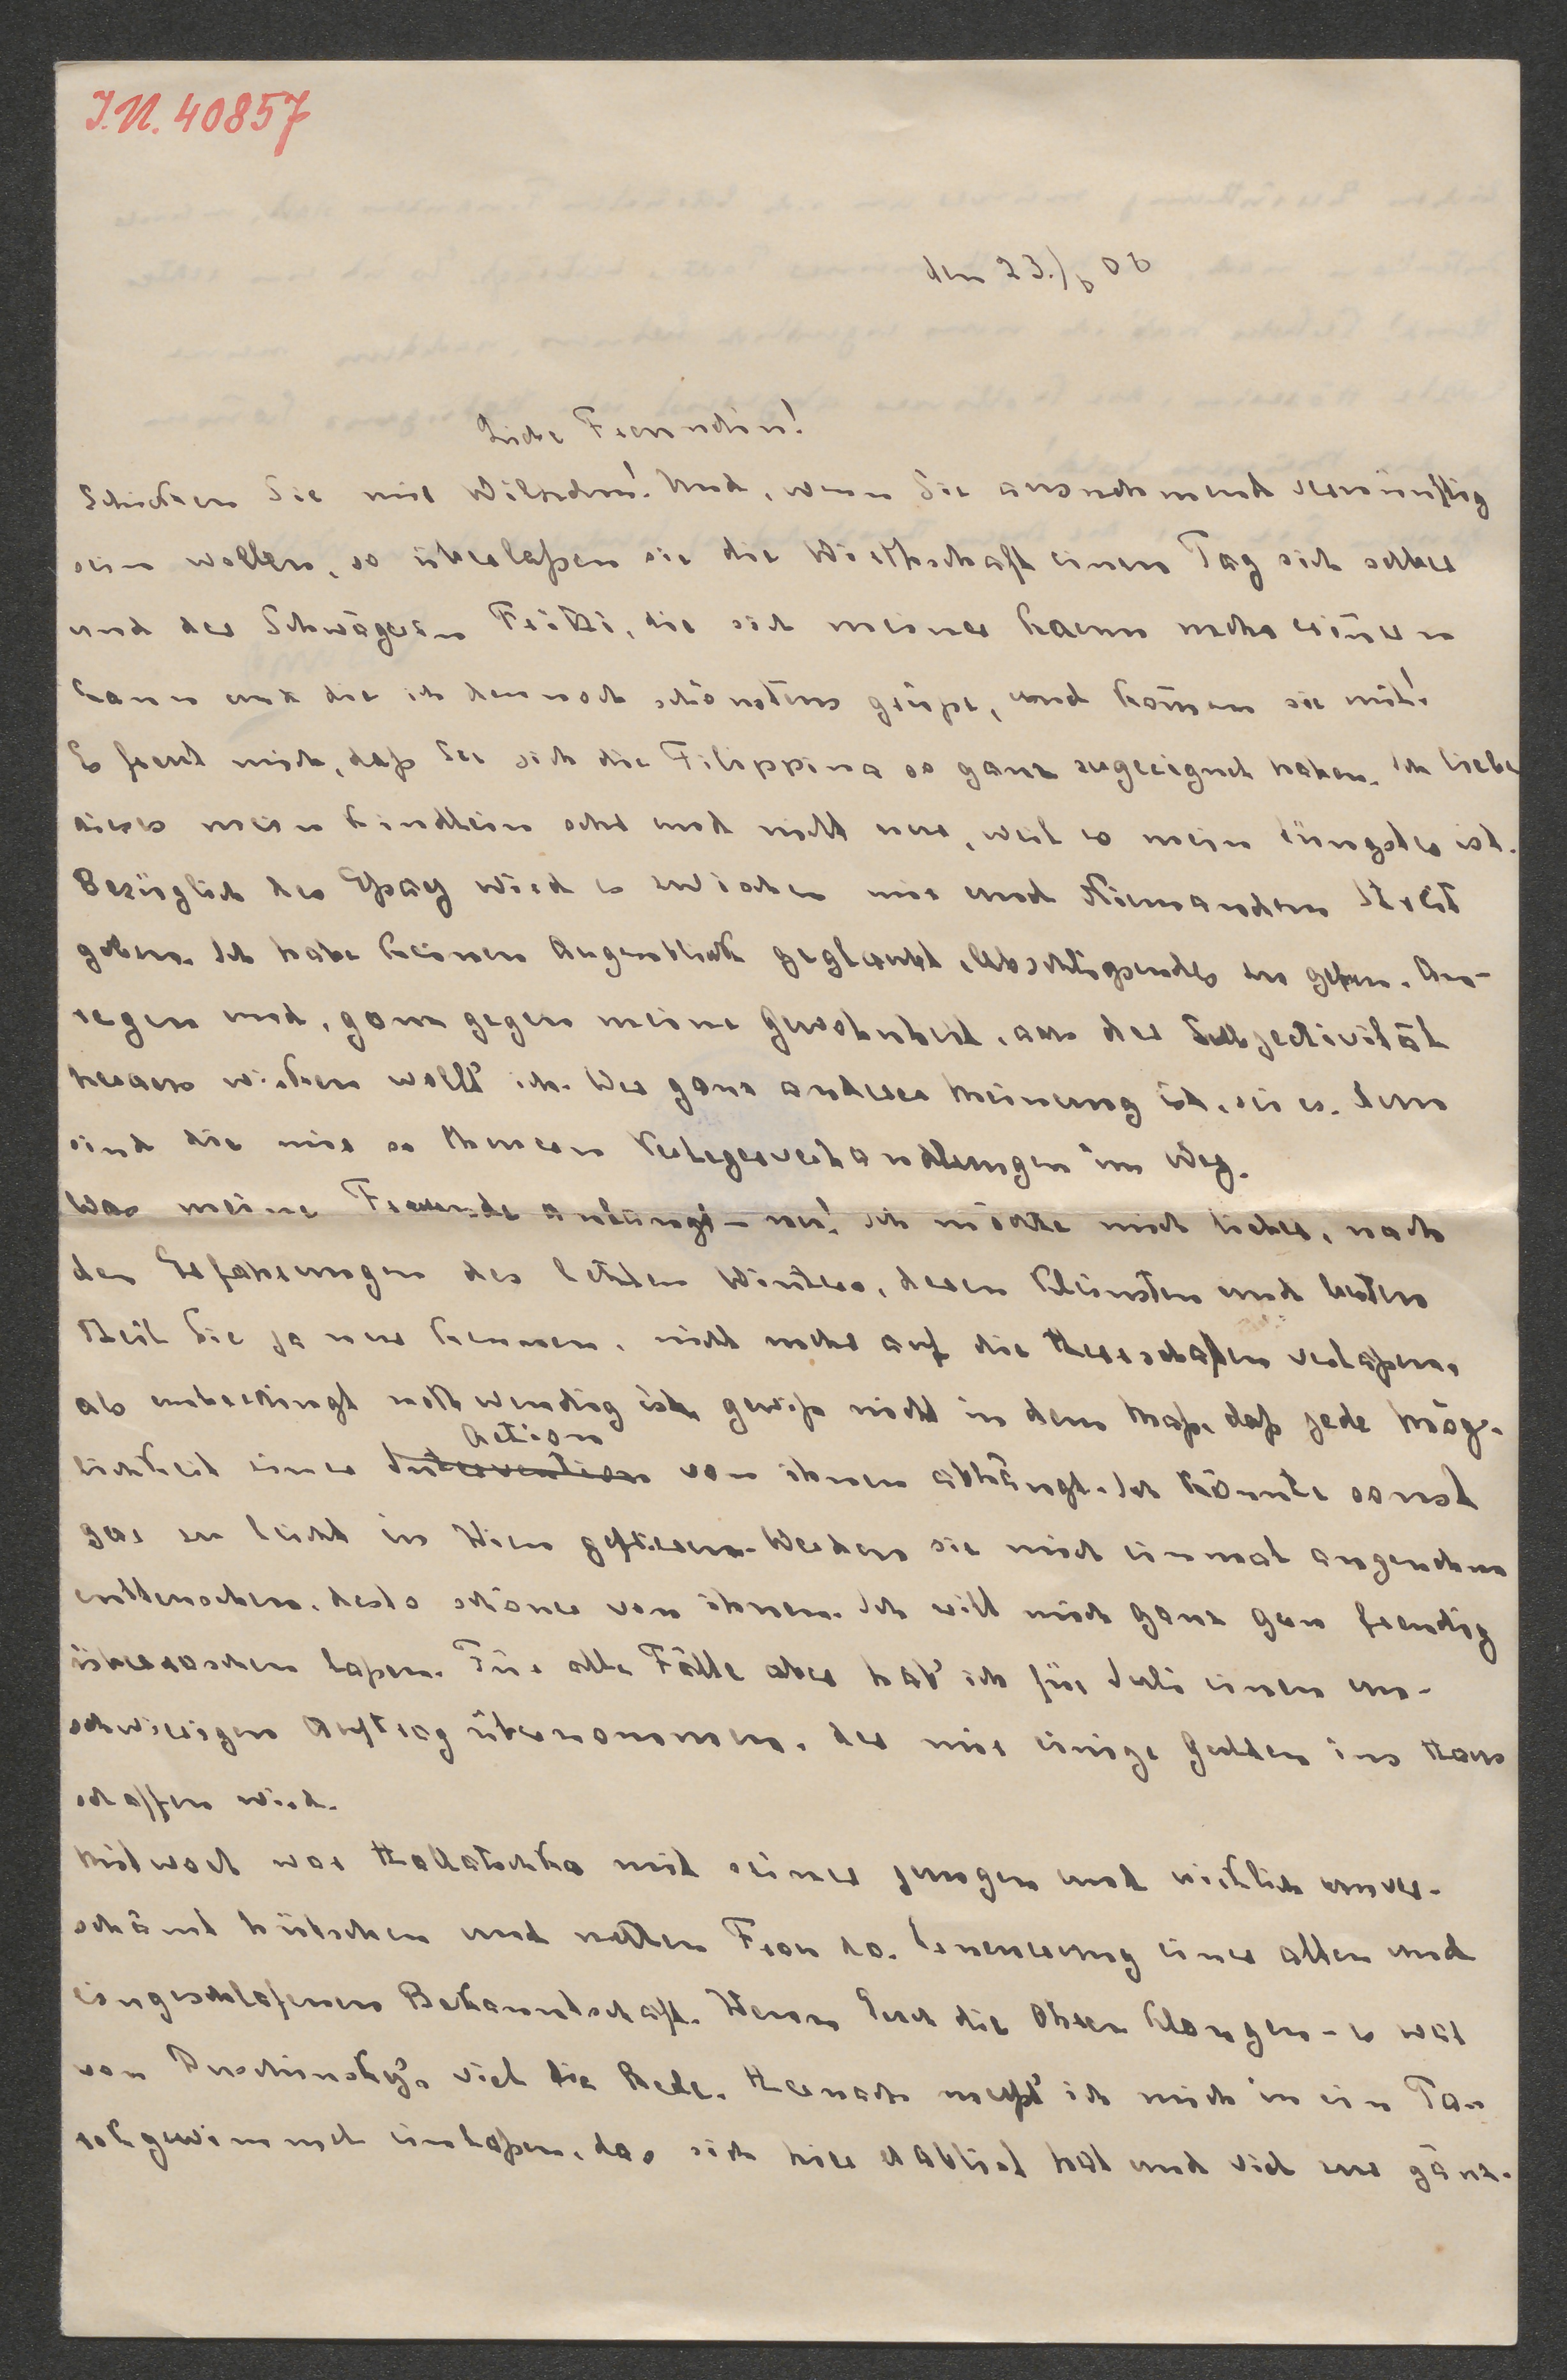 J.N. 40857
den 23./6 06
Liebe Freundin!
Schicken Sie mir Wilhelm! Und, wenn Sie ausnehmend vernünftig
sein wollen, so überlaßen sie die Wirthschaft einen Tag sich selber
und der Schwägerin Fritzi, die sich meiner kaum mehr erin̄ern
kann und die ich dennoch schönstens grüße, und kom̄en sie mit!
Es freut mich, daß Sie sich die Filippina so ganz zugeeignet haben. Ich liebe
dieses mein Kindlein sehr und nicht nur, weil es mein jüngstes ist.
Bezüglich des Eßay wird es zwischen mir und Niemandem Streit
geben. Ich habe keinen Augenblick geglaubt, Abschließendes zu geben. An-
regen und, ganz gegen meine Gewohnheit, aus der Subjectivität
heraus wirken wollt' ich. Wer ganz anderer Meinung ist, sei es. Nun
sind die mir so theuern Verlegerverhandlungen im Weg.
Was meine Freunde anlangt – nu! ich möchte mich lieber, nach
den Erfahrungen des letzten Winters, deren kleinsten und besten
Theil Sie ja nur kennen, nicht mehr auf die Herrschaften verlaßen,
als unbedingt nothwendig ist, gewiß nicht in dem Maß, daß jede Mög-
Action
lichkeit einer Intervention von ihnen abhängt. Ich könnte sonst
gar zu leicht in Wien gefrieren. Werden sie mich einmal angenehm
enttäuschen, desto schöner von ihnen. Ich will mich ganz gern freudig
überraschen laßen. Für alle Fälle aber hab' ich für Juli einen un-
schwierigen Auftrag übernommen, der mir einige Gulden ins Haus
schaffen wird.
Mittwoch war Hallatschka mit seiner jungen und wirklich unver-
schämt hübschen und netten Frau da. Erneuerung einer alten und
eingeschlafenen Bekanntschaft. Wenn Euch die Ohren klangen – es war
von Duschinsky's viel die Rede. Hernach mußt' ich mich in ein Ta-
rokgewimmel einlaßen, das sich hier etablirt hat und viel zur gänz-